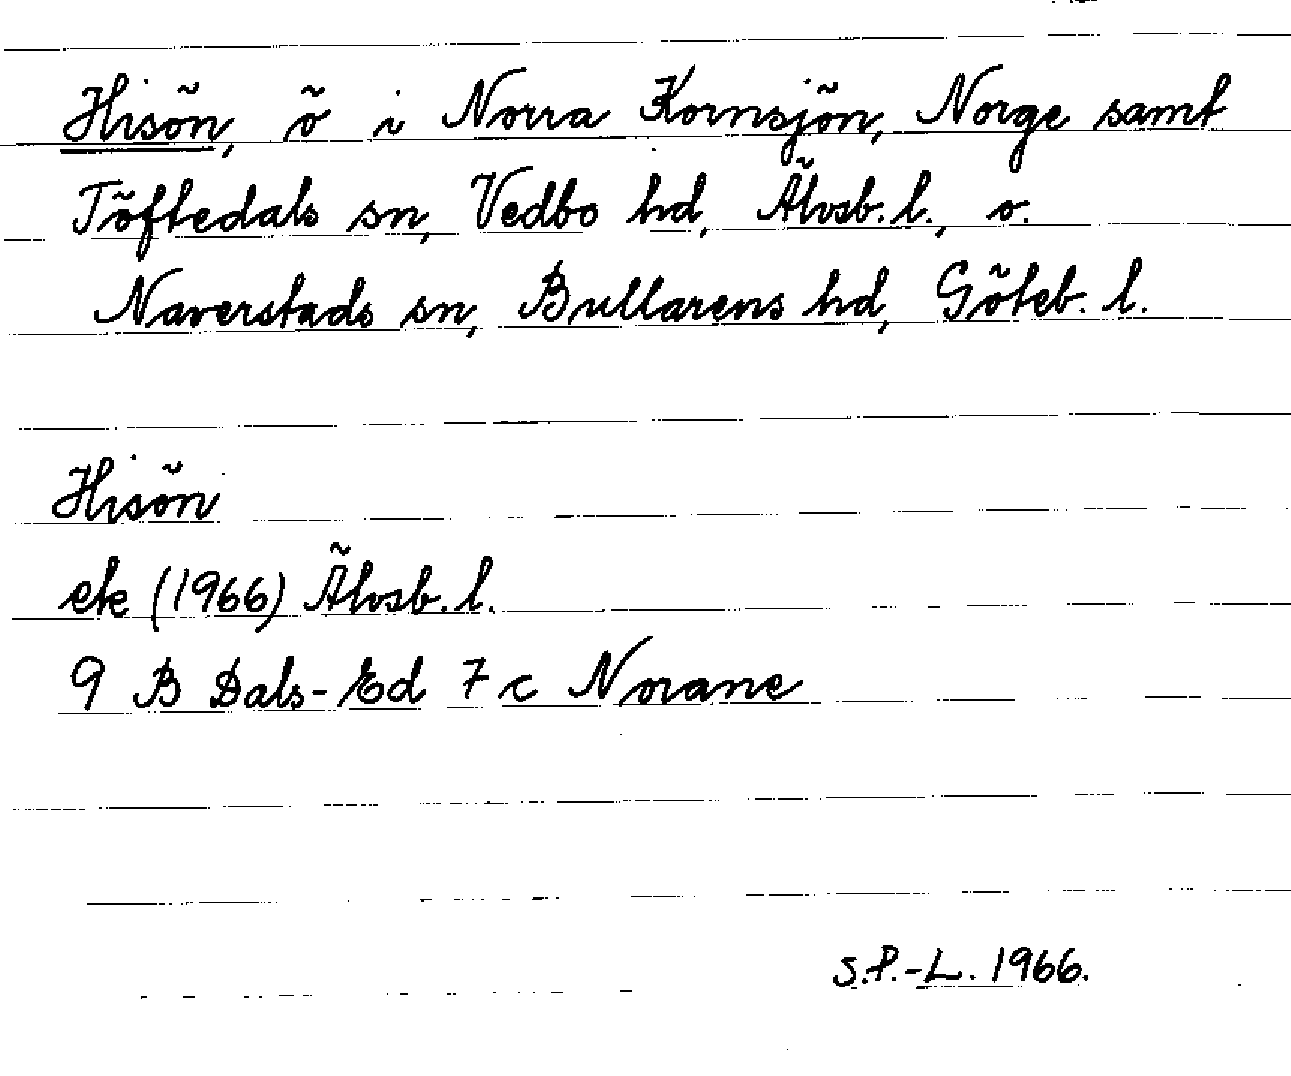 Hisön, ö i Norra Kornsjön, Norge samt
Töftedals sn, Vedbo hd, Älvsb. l., o.
Naverstads sn, Bullarens hd, Göteb. l.
Hisön
ek (1966) Älvsb. l.
9 B Dals-Ed 7 c Norane
S.P.-L. 1966.